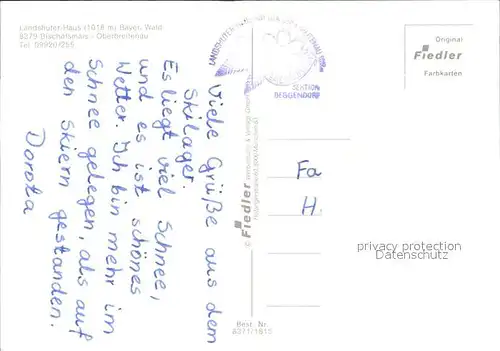 Landshuter-Haus (1018 m) Bayer. Wald
8379 Bischofsmais - Oberbreitenau
Tel. 09920/255
Viele Grüße aus dem
Skilager.
Es liegt viel Schnee,
und es ist schönes
Wetter. Ich bin mehr im
Schnee gelegen, als auf
den Skiern gestanden.
Dorota
LANDSHUTER
SEKTION
DEGGENDORF
© Fiedler
Best. Nr.
8371/1615
Original
Fiedler
Farbkarten
Fa
H.
privacy protection
Datenschutz